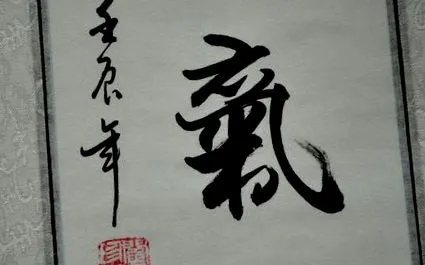 氣
壬辰年